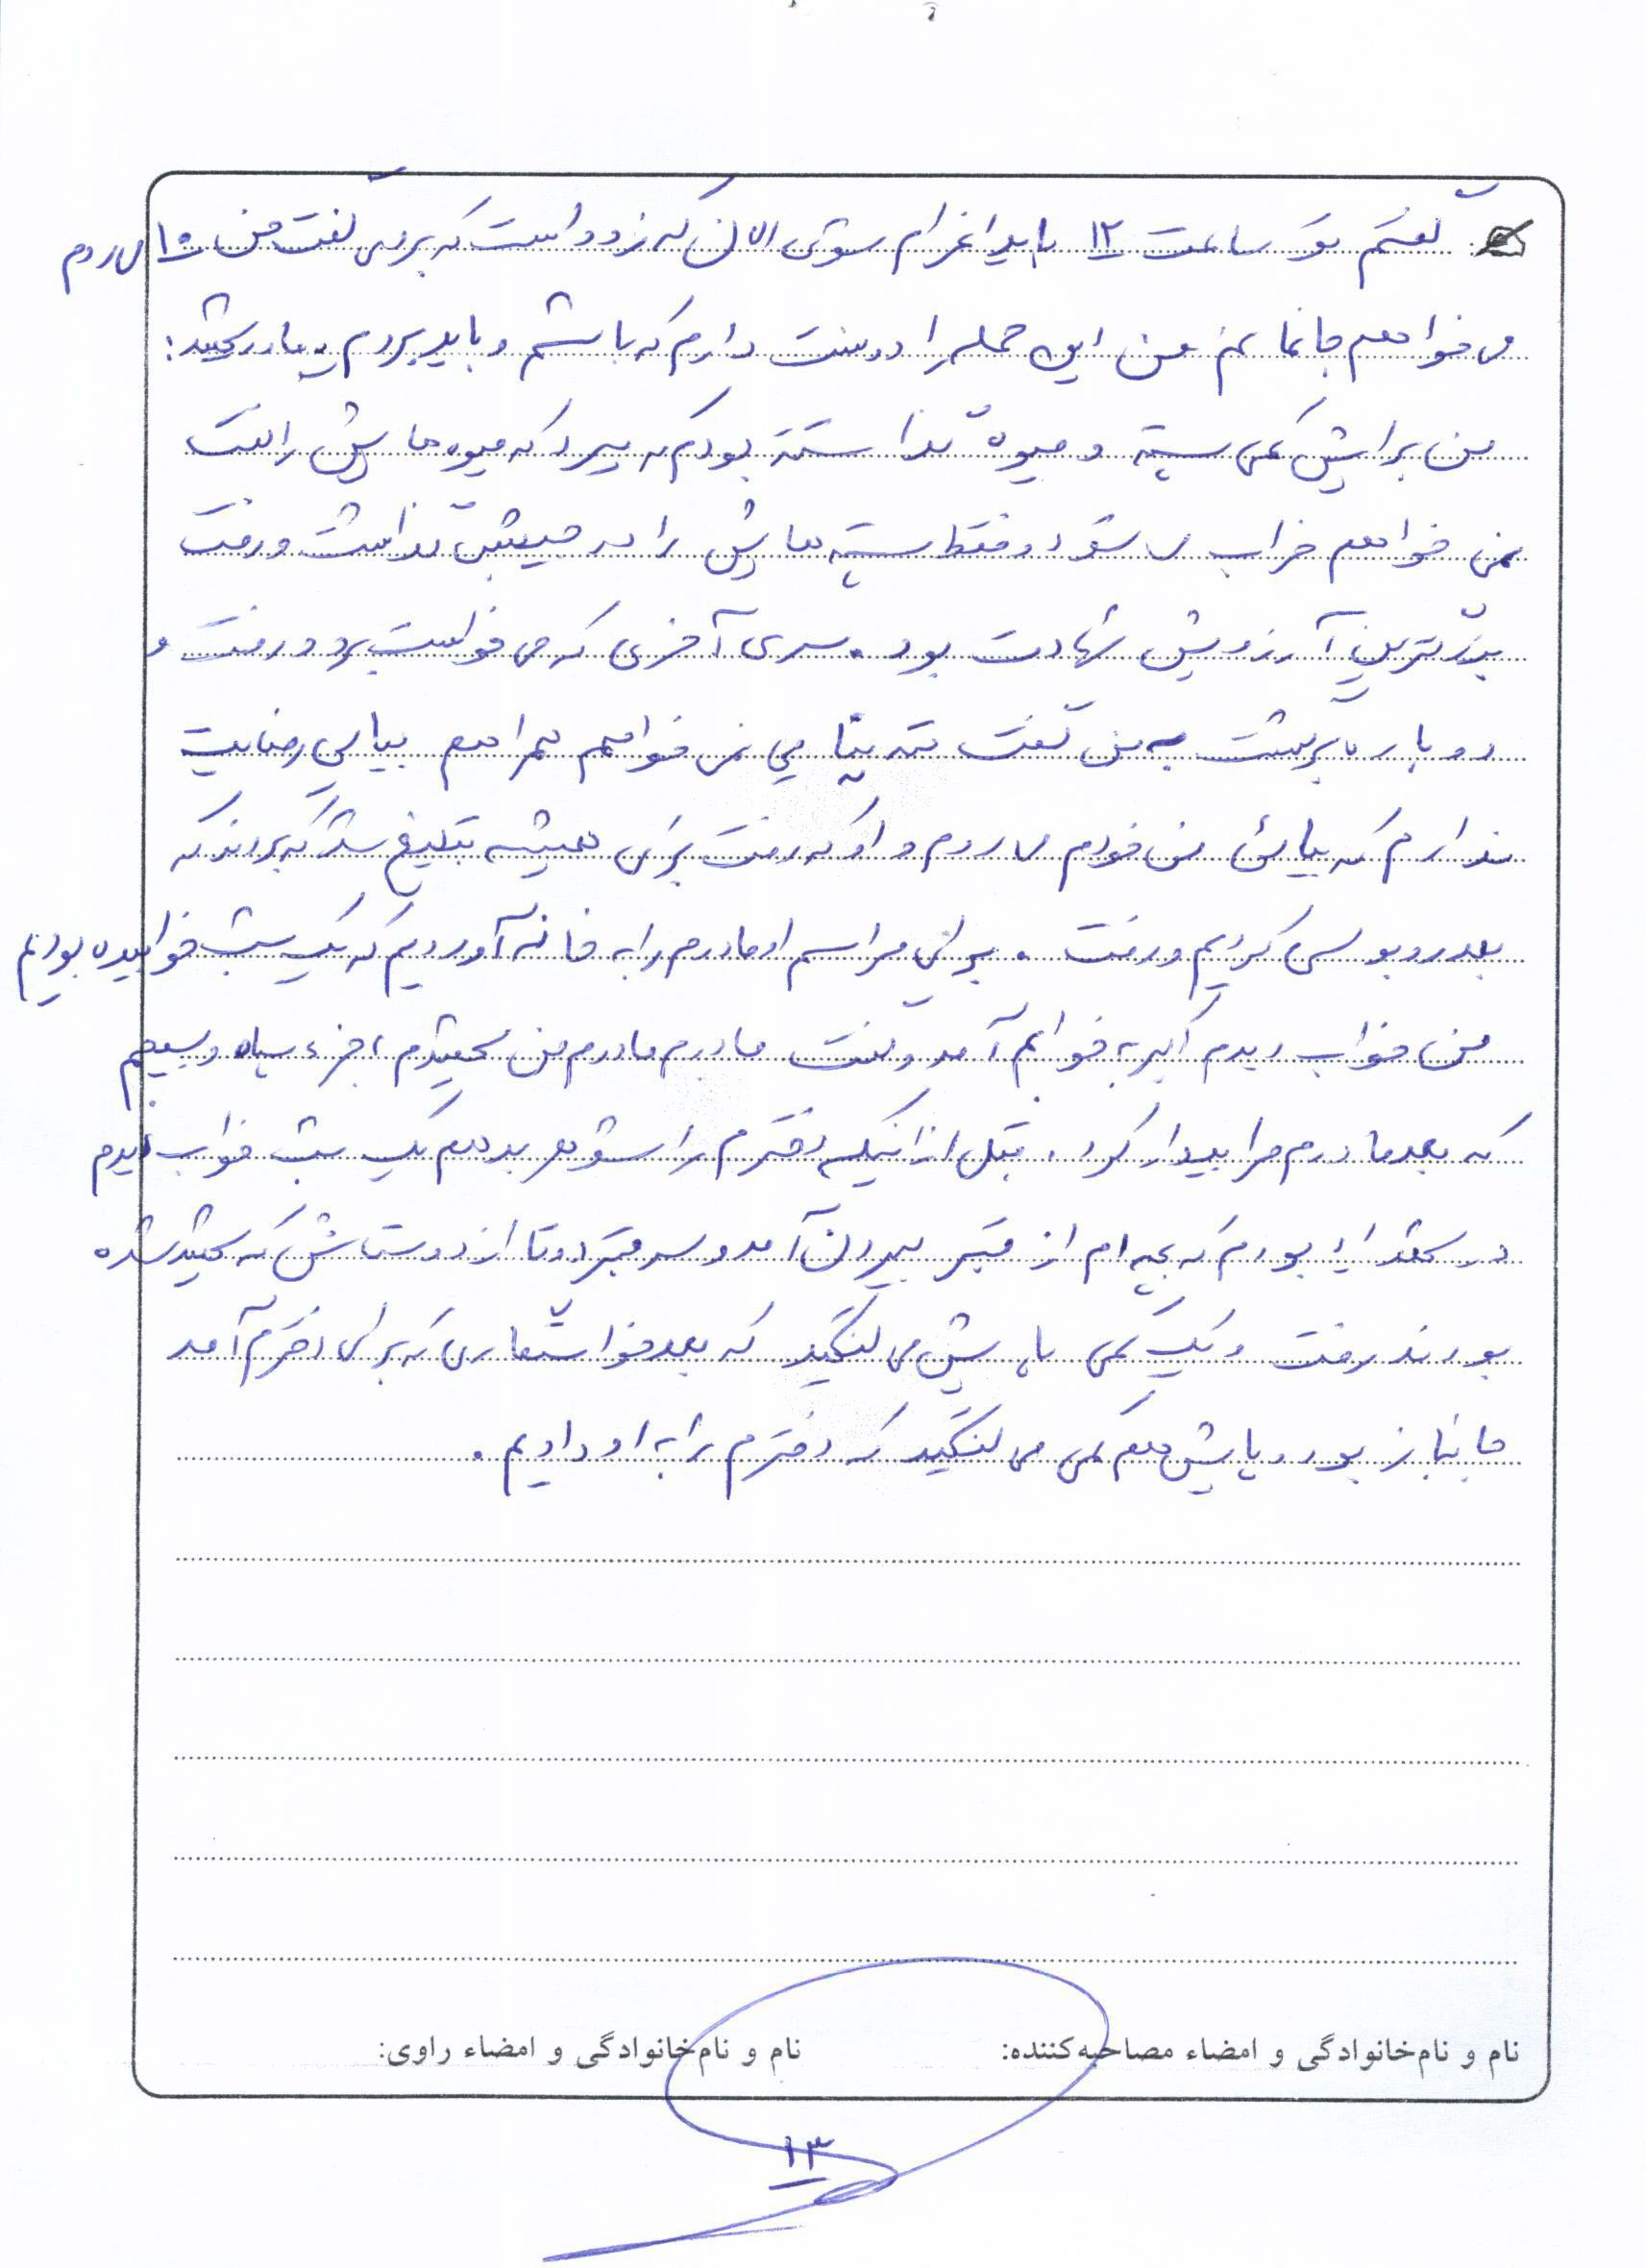 گفتم تو ساعت ۱۲ باید اعزام شوی الان که زود است که بروی گفت من ۱۰ می روم
می خواهم جا نمانم من این حمله را دوست دارم که باشم و باید بروم. مادر شهید:
من برایش کمی پسته و میوه گذاشته بودم که ببرد که میوه هایش را گفت
نمی خواهم خراب می شود و فقط پسته هایش را در جیبش گذاشت و رفت
بزرگترین آرزویش شهادت بود. سری آخری که می خواست برود رفت و
دوباره برگشت به من گفت ننه بیایی نمی خواهم همراهم بیایی رضایت
ندارم که بیائی من خودم می روم و او که رفت برای همیشه شد که بروند که
بعد روبوسی کردیم و رفت. برای مراسم او مادرم را به خانه آوردیم که یک شب خوابیده بودیم
من خواب دیدم اکبر به خوابم آمد و گفت مادرم مادرم من شهیدم، جزء سپاه و بسیجم
که بعد مادرم مرا بیدار کرد. قبل از اینکه دخترم را شوهر بدهم یک شب خواب دیدم
در شهدا بودم که بچه ام از قبر بیرون آمد و سر قبر دوتا از دوستاش که شهید شده
بودند رفت و یک کمی پایش می لنگید که بعد خواستگاری که برای دخترم آمد
جانباز بود و پایش هم کمی می لنگید که دخترم را به او دادیم.
نام و نام‌خانوادگی و امضاء مصاحبه‌کننده: نام و نام‌خانوادگی و امضاء راوی:
۱۳